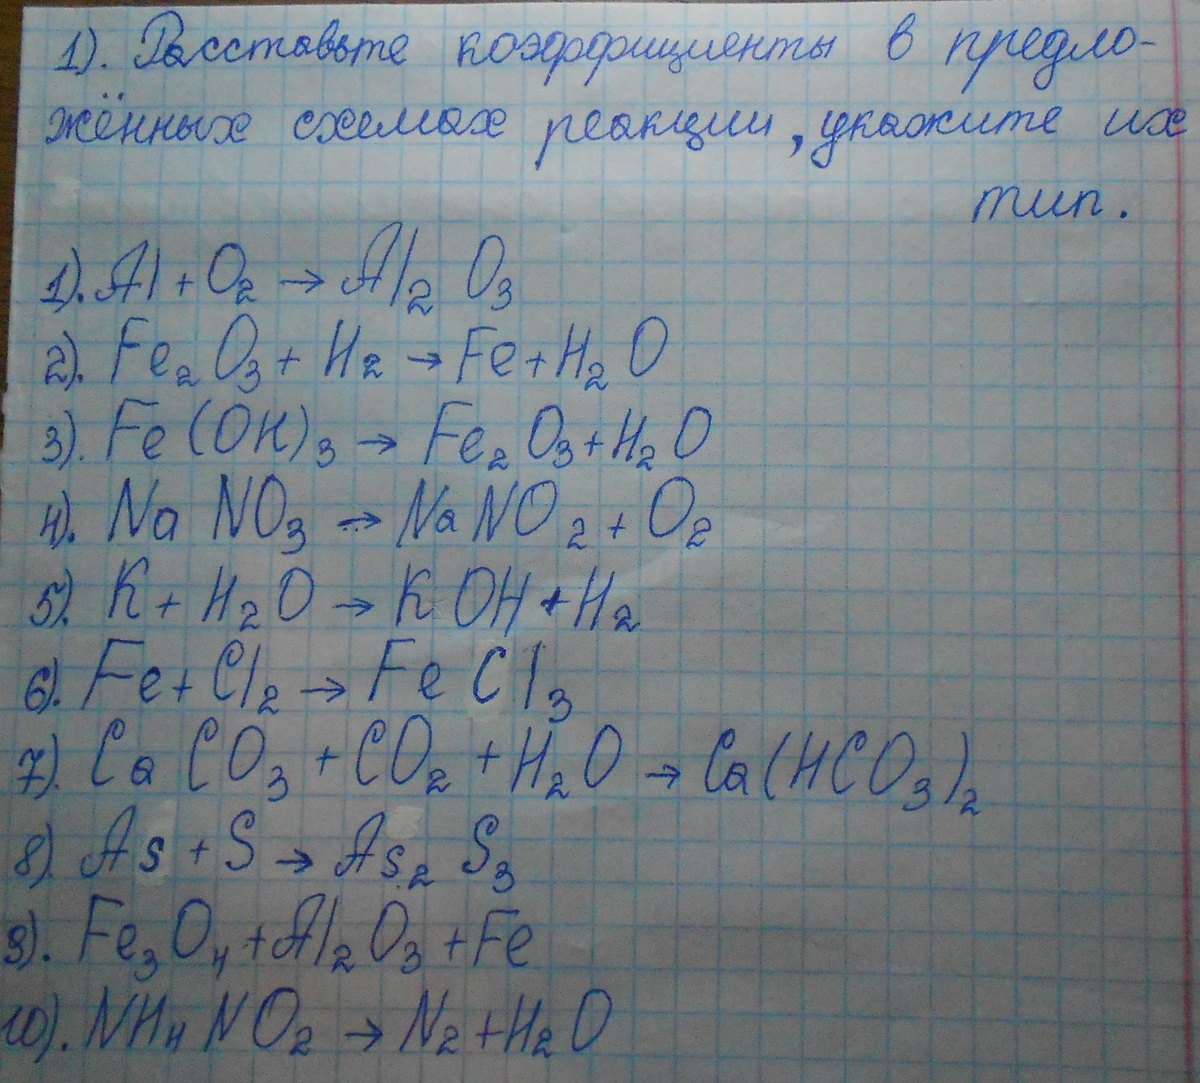 1). Расставьте коэффициенты в предло-
жённых схемах реакции, укажите их
тип.
1). Al + O₂ → Al₂ O₃
2). Fe₂ O₃ + H₂ → Fe + H₂ O
3). Fe (OH)₃ → Fe₂ O₃ + H₂ O
4). Na NO₃ → Na NO₂ + O₂
5). K + H₂ O → K OH + H₂
6). Fe + Cl₂ → Fe Cl₃
7). Ca CO₃ + CO₂ + H₂ O → Ca (HCO₃)₂
8). As + S → As₂ S₃
9). Fe₃ O₄ + Al₂ O₃ + Fe
10). NH₄ NO₂ → N₂ + H₂ O